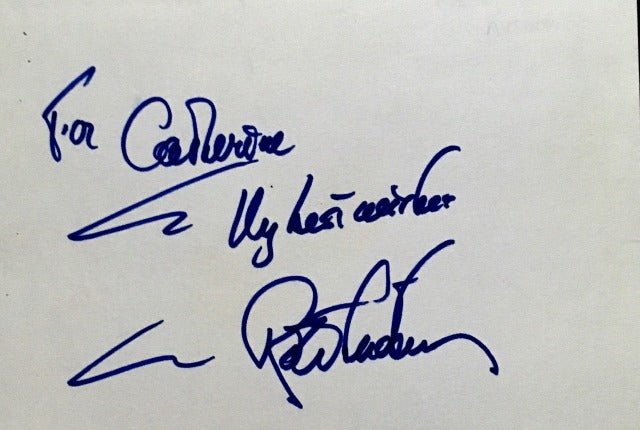 For Catherine
My best wishes